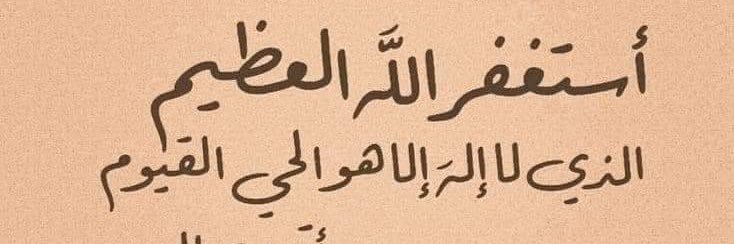 أستغفر اللَّه العظيم
الذي لا إلهَ إلا هو الحي القيوم